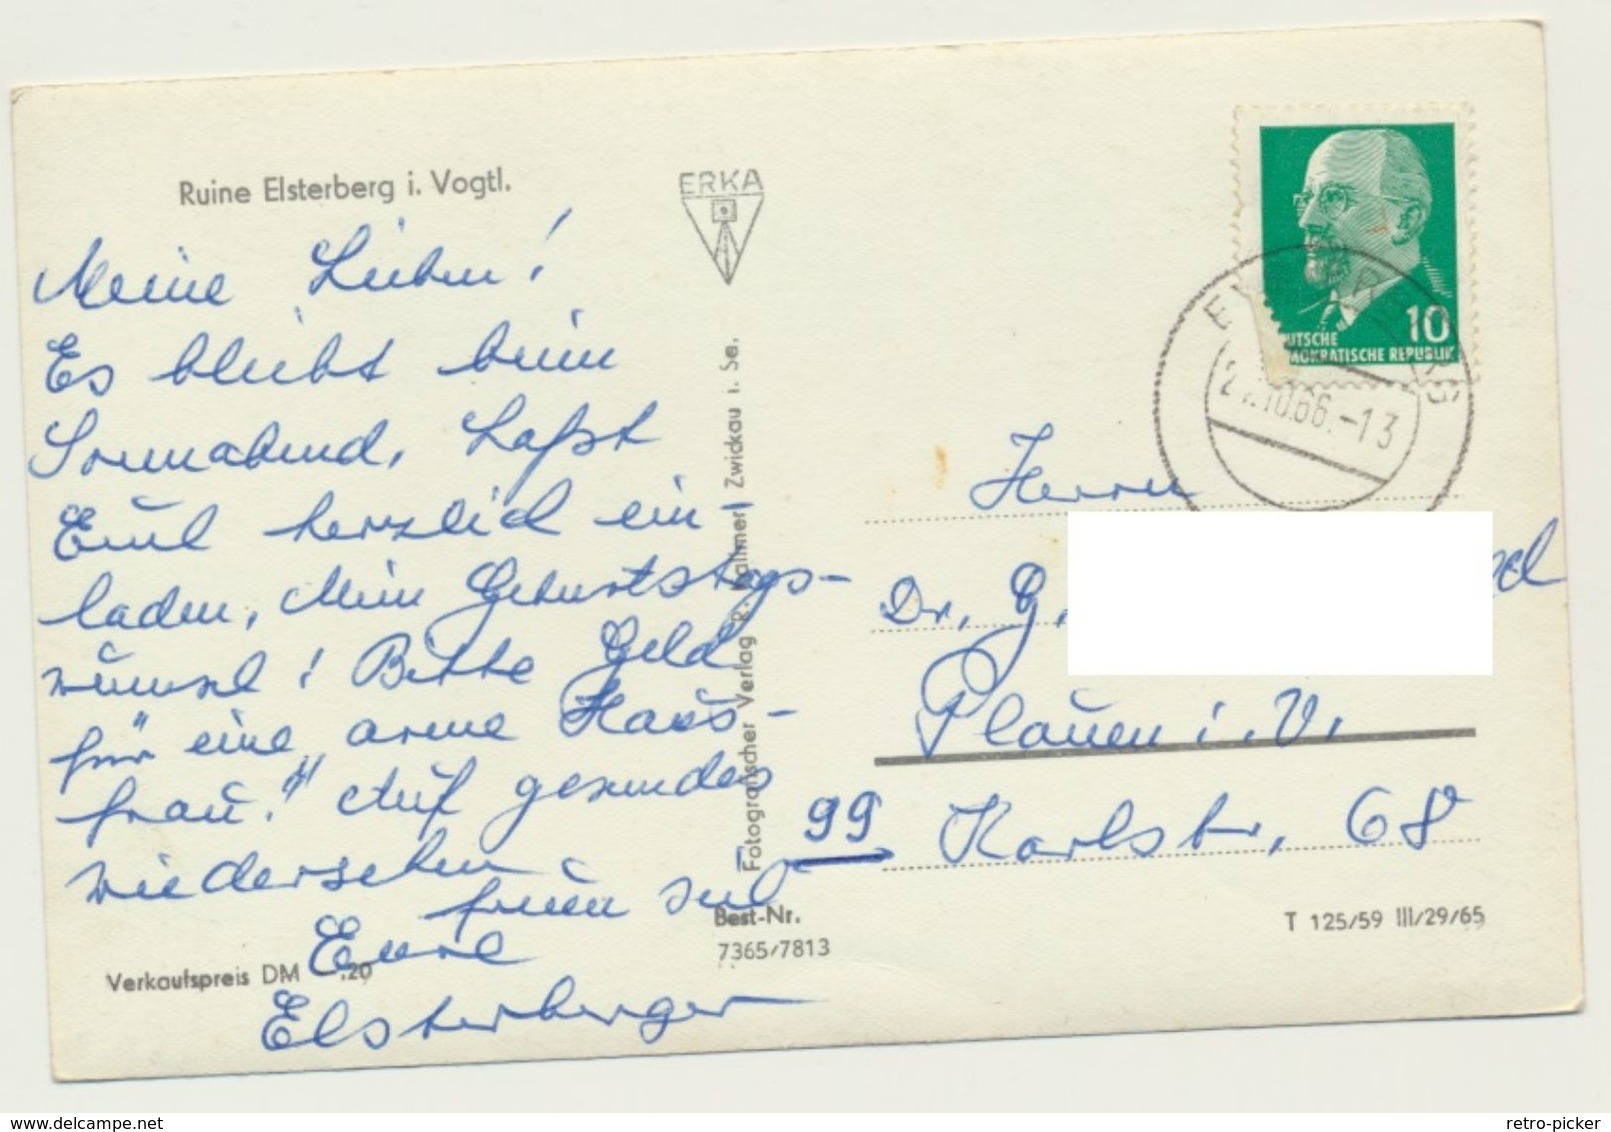 Ruine Elsterberg i. Vogtl.
Meine Lieben!
Es bleibt beim
Sonnabend. Laßt
Euch herzlich ein-
laden, Mein Geburtstags-
wunsch! Bitte Geld
für "eine arme Haus-
frau." Auf gesundes
Wiedersehen
freuen sich
Eure
Elsterberger
Verkaufspreis DM .20
ERKA
Fotografischer Verlag R. Kallmer, Zwickau i. Sa.
Best-Nr.
7365/7813
10
DEUTSCHE
DEMOKRATISCHE REPUBLIK
.10.66.-13
Herrn
Dr. G.
Plauen i. V.
99 Karlstr. 68
T 125/59 III/29/65
delcampe.net
retro-picker